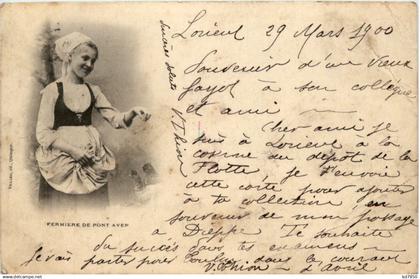 Lorient 29 Mars 1900
Souvenir d'un vieux
fayot à son collègue
et ami
Cher ami je
suis à Lorient à la
caserne du dépôt de la
Flotte je t'envoie
cette carte pour ajouter
à ta collection en
souvenir de mon passage
à Dieppe Je souhaite
du succès dans tes examens
je vais partir pour Toulon dans le courant
V. Thion d'Avril
Succès soldats
V Thion
FERMIERE DE PONT AVEN
Villard, éd., Quimper
delcampe.net
bd7950